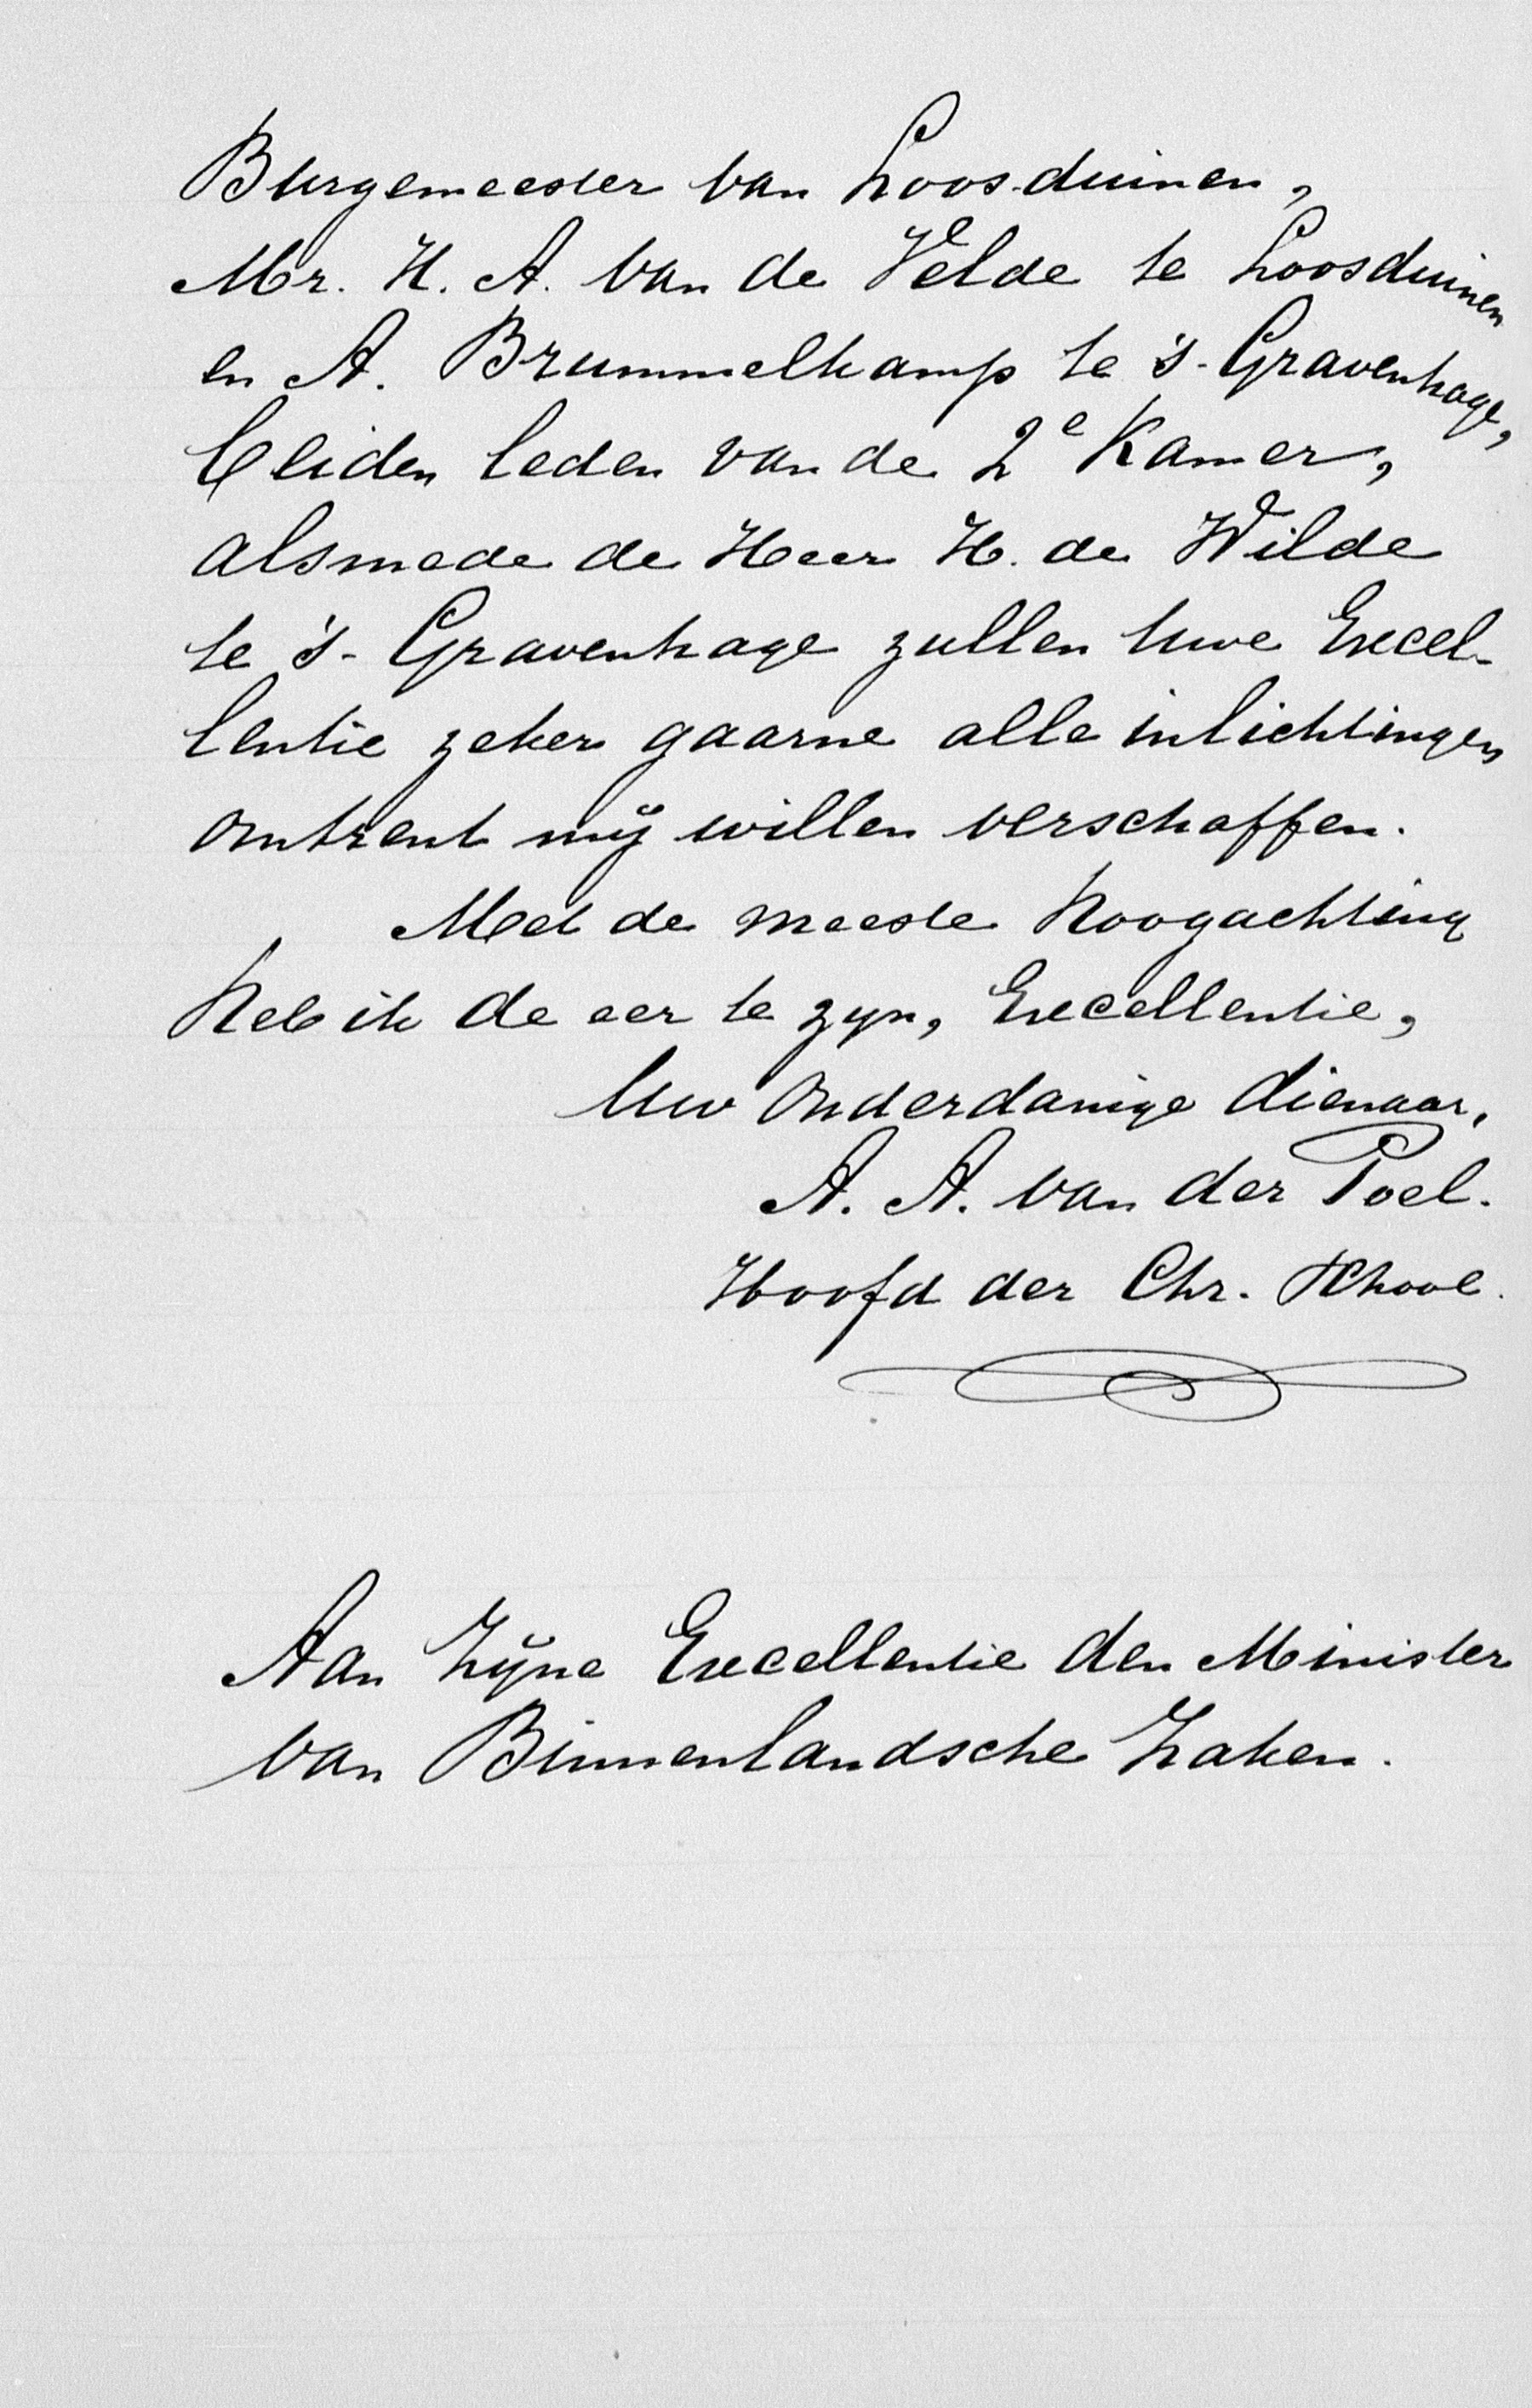 Burgemeester van Loosduinen,
Mr. H. A. van de Velde te Loosduinen
en A. Brummelkamp te 's-Gravenhage,
beiden leden van de 2e Kamer,
alsmede de Heer H. de Wilde
te 's-Gravenhage zullen Uwe Excel-
lentie zeker gaarne alle inlichtingen
omtrent mij willen verschaffen.
Met de meeste hoogachting
heb ik de eer te zijn, Excellentie,
Uw onderdanige dienaar,
A. A. van der Poel.
Hoofd der Chr. School.
Aan Zijne Excellentie den Minister
van Binnenlandsche Zaken.